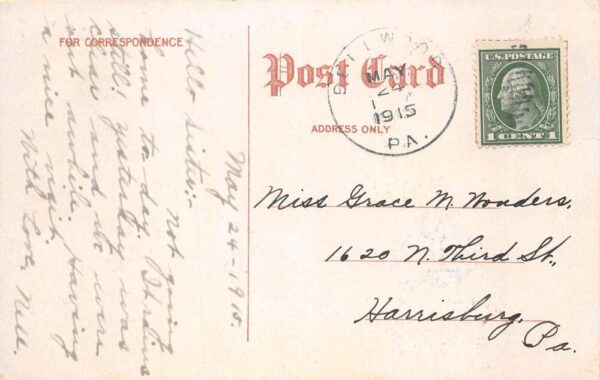 FOR CORRESPONDENCE
Post Card
ADDRESS ONLY
BELLWOOD
MAY
24
1915
PA.
U.S. POSTAGE
1 CENT 1
May 24-1915.
Hello Sister:-
Not going
home to-day. It rains
still! yesterday was
clear and were
out awhile, having
a nice visit.
With Love, Nell.
Miss Grace M. Wonders,
1620 N. Third St.,
Harrisburg,
Pa.